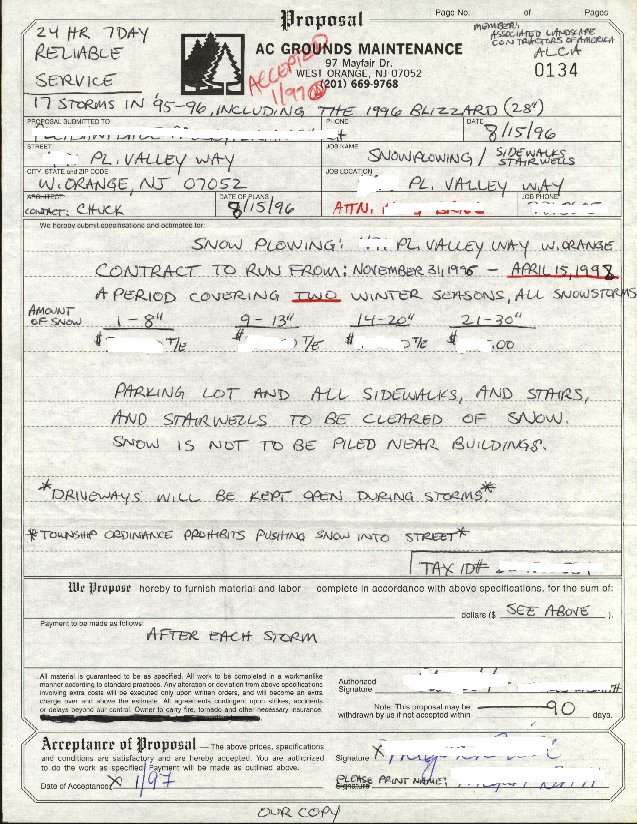 Proposal
Page No. of Pages
24 HR 7DAY
RELIABLE
SERVICE
AC GROUNDS MAINTENANCE
97 Mayfair Dr.
WEST ORANGE, NJ 07052
(201) 669-9768
ACCEPTED
1/97
MEMBER:
ASSOCIATED LANDSCAPE
CONTRACTORS OF AMERICA
ALCA
0134
17 STORMS IN '95-96, INCLUDING THE 1996 BLIZZARD (28")
PROPOSAL SUBMITTED TO PHONE DATE
8/15/96
STREET JOB NAME
PL. VALLEY WAY SNOWPLOWING / SIDEWALKS STAIRWELLS
CITY, STATE and ZIP CODE JOB LOCATION
W. ORANGE, NJ 07052 PL. VALLEY WAY
ARCHITECT DATE OF PLANS JOB PHONE
CONTACT: CHUCK 8/15/96 ATTN.
We hereby submit specifications and estimates for:
SNOW PLOWING: PL. VALLEY WAY W. ORANGE
CONTRACT TO RUN FROM: NOVEMBER 31, 1996 - APRIL 15, 1998
A PERIOD COVERING TWO WINTER SEASONS, ALL SNOWSTORMS
AMOUNT
OF SNOW 1-8" 9-13" 14-20" 21-30"
$ T/E $ T/E $ T/E $ .00
PARKING LOT AND ALL SIDEWALKS, AND STAIRS,
AND STAIRWELLS TO BE CLEARED OF SNOW.
SNOW IS NOT TO BE PILED NEAR BUILDINGS.
*DRIVEWAYS WILL BE KEPT OPEN DURING STORMS.*
*TOWNSHIP ORDINANCE PROHIBITS PUSHING SNOW INTO STREET*
TAX ID#
We Propose hereby to furnish material and labor — complete in accordance with above specifications, for the sum of:
dollars ($ SEE ABOVE ).
Payment to be made as follows:
AFTER EACH STORM
All material is guaranteed to be as specified. All work to be completed in a workmanlike
manner according to standard practices. Any alteration or deviation from above specifications
involving extra costs will be executed only upon written orders, and will become an extra
charge over and above the estimate. All agreements contingent upon strikes, accidents
or delays beyond our control. Owner to carry fire, tornado and other necessary insurance.
Authorized
Signature
Note: This proposal may be
withdrawn by us if not accepted within 90 days.
Acceptance of Proposal — The above prices, specifications
and conditions are satisfactory and are hereby accepted. You are authorized
to do the work as specified. Payment will be made as outlined above.
Date of Acceptance: X 1/97
Signature X
PLEASE PRINT NAME:
Signature
OUR COPY